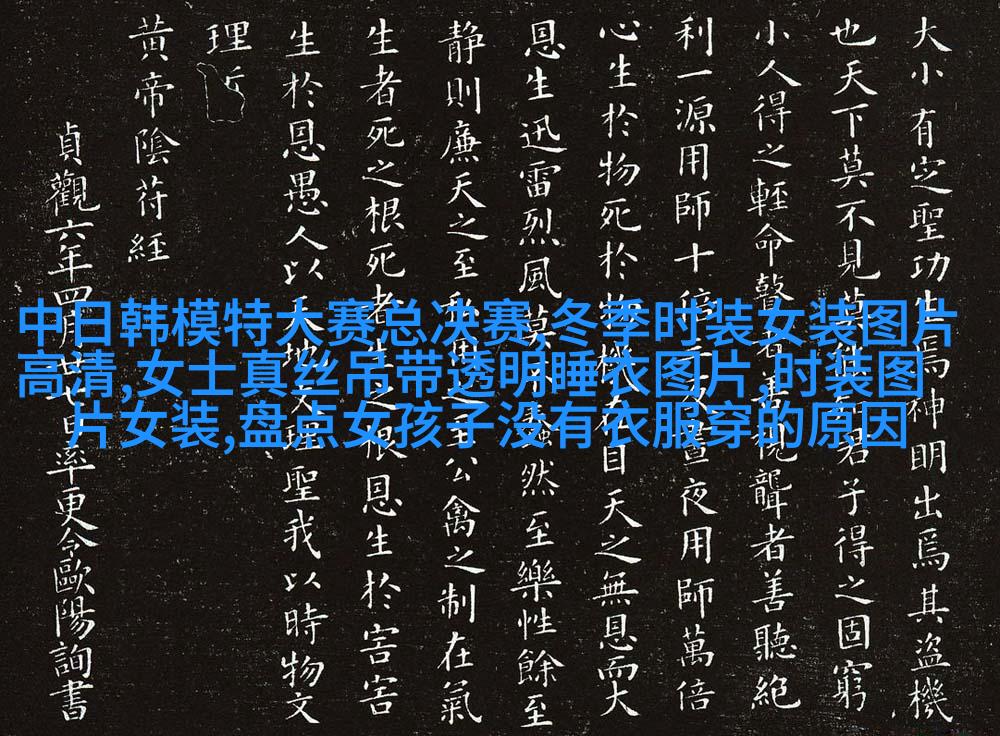 大小有定聖功生焉神明出焉其盜機
也天下莫不見莫君子得之固窮
小人得之輕命瞽者善視聾者善聽絕
利一源用師十倍晝夜用師萬倍
心生於物死於物機在目天之無恩而大
恩生迅雷烈風莫不蠢然至樂性餘至
静則廉天之至私用之至公禽之制在氣
生者死之根死者生之根恩生於害害
生於恩愚人以天地文理聖我以時物文
理
黃帝陰符經
貞觀六年四月廿七日率更令歐陽詢書
中日韩模特大赛总决赛,冬季时装女装图片
高清,女士真丝吊带透明睡衣图片,时装图
片女装,盘点女孩子没有衣服穿的原因